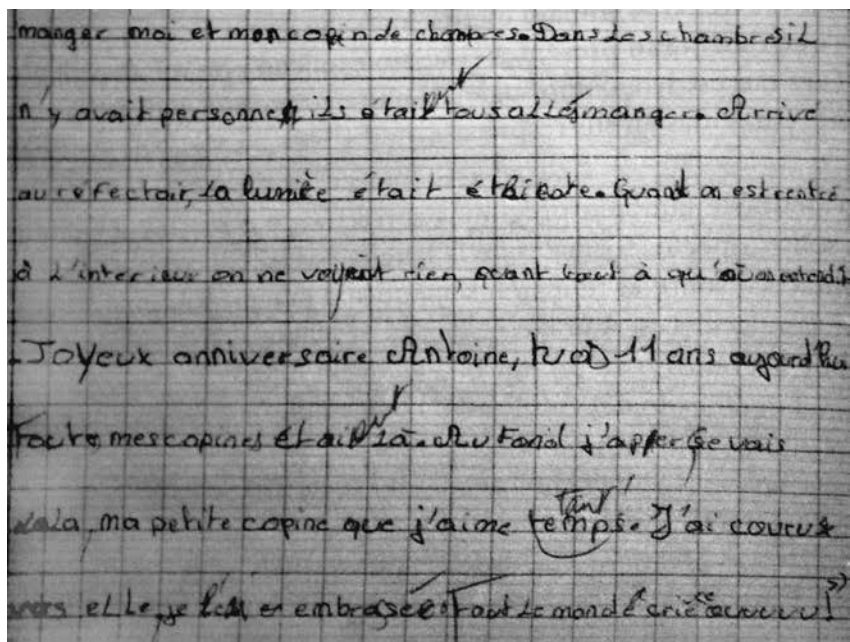 manger moi et mon copin de chambres. Dans les chambres il
n'y avait personne, ils était tous allés manger. Arrivé
au réfectoir, la lumière était éteinte. Quand on est rentré
à l'interieur on ne voyait rien, quant tout à qu'où on entend :
- Joyeux anniversaire Antoine, tu as 11 ans aujourd'hui
Toute mes copines étais là. Au Fond j'apperçevais
ma petite copine que j'aime temps. tant J'ai courus
vers elle, je l'ai embrasée. Tout le monde crié